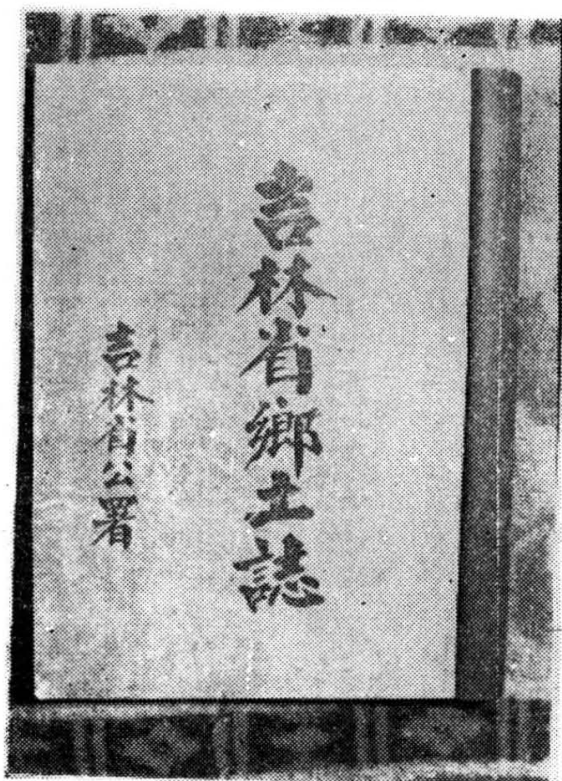 吉林省鄉土誌
吉林省公署